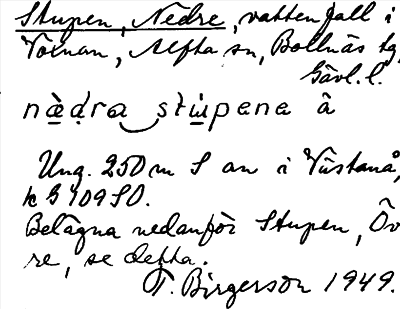 Stupen, Nedre, vattenfall i
Voxnan, Alfta sn, Bollnäs tg,
Gävl. l.
næ̀dra stu̇pena å
Ung. 250 m S an i Västanå,
k G 109 SO.
Belägna nedanför Stupen, Öv
re, se detta.
T. Birgerson 1949.